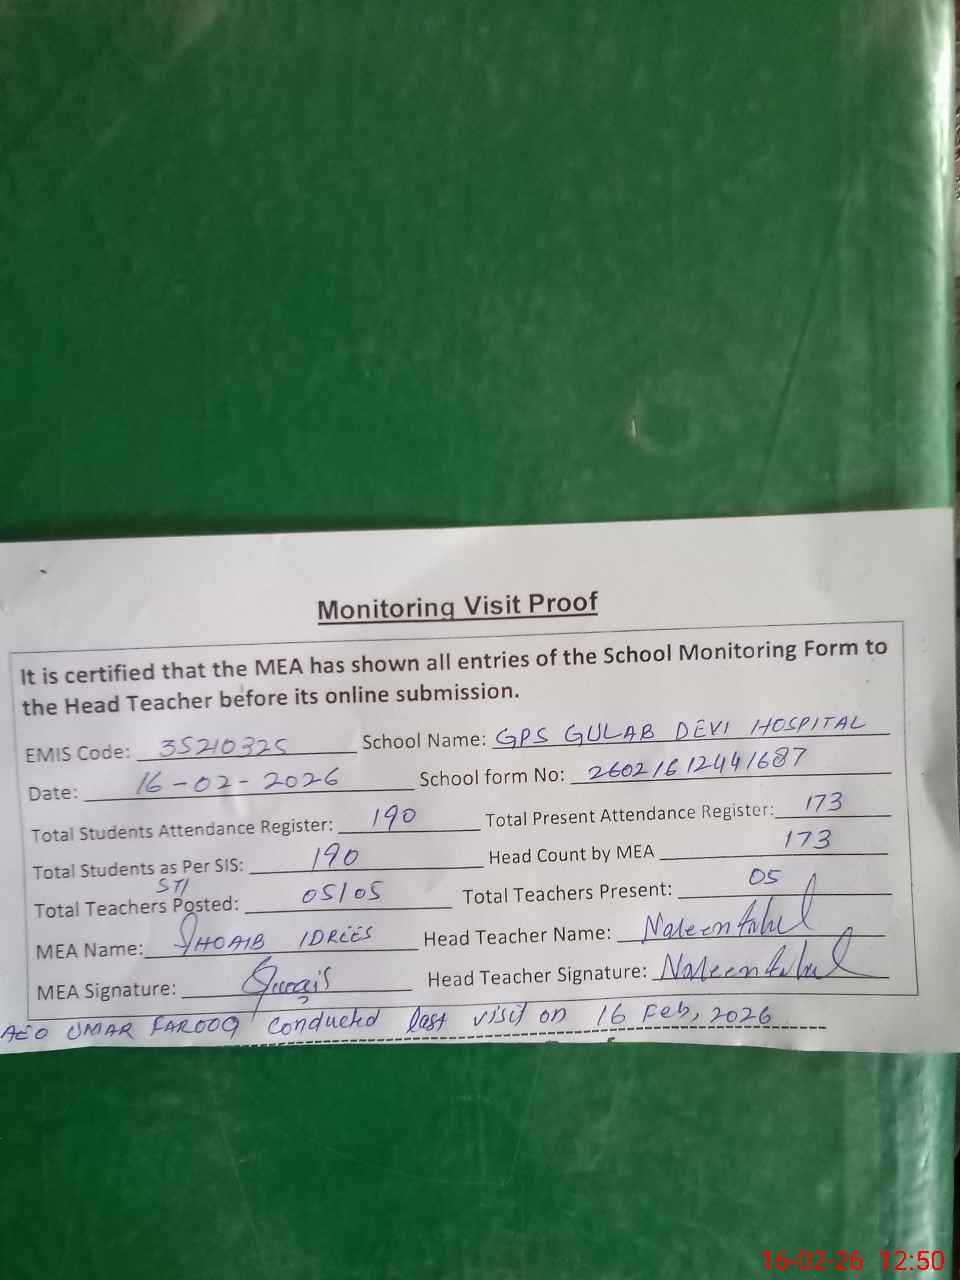 Monitoring Visit Proof
It is certified that the MEA has shown all entries of the School Monitoring Form to
the Head Teacher before its online submission.
EMIS Code: 35210325 School Name: GPS GULAB DEVI HOSPITAL
Date: 16-02-2026 School form No: 26021612441687
Total Students Attendance Register: 190 Total Present Attendance Register: 173
Total Students as Per SIS: 190 Head Count by MEA 173
STI
Total Teachers Posted: 05/05 Total Teachers Present: 05
MEA Name: SHOAIB IDREES Head Teacher Name:
MEA Signature: Head Teacher Signature:
AEO UMAR FAROOQ conducted last visit on 16 Feb, 2026
16-02-26 12:50